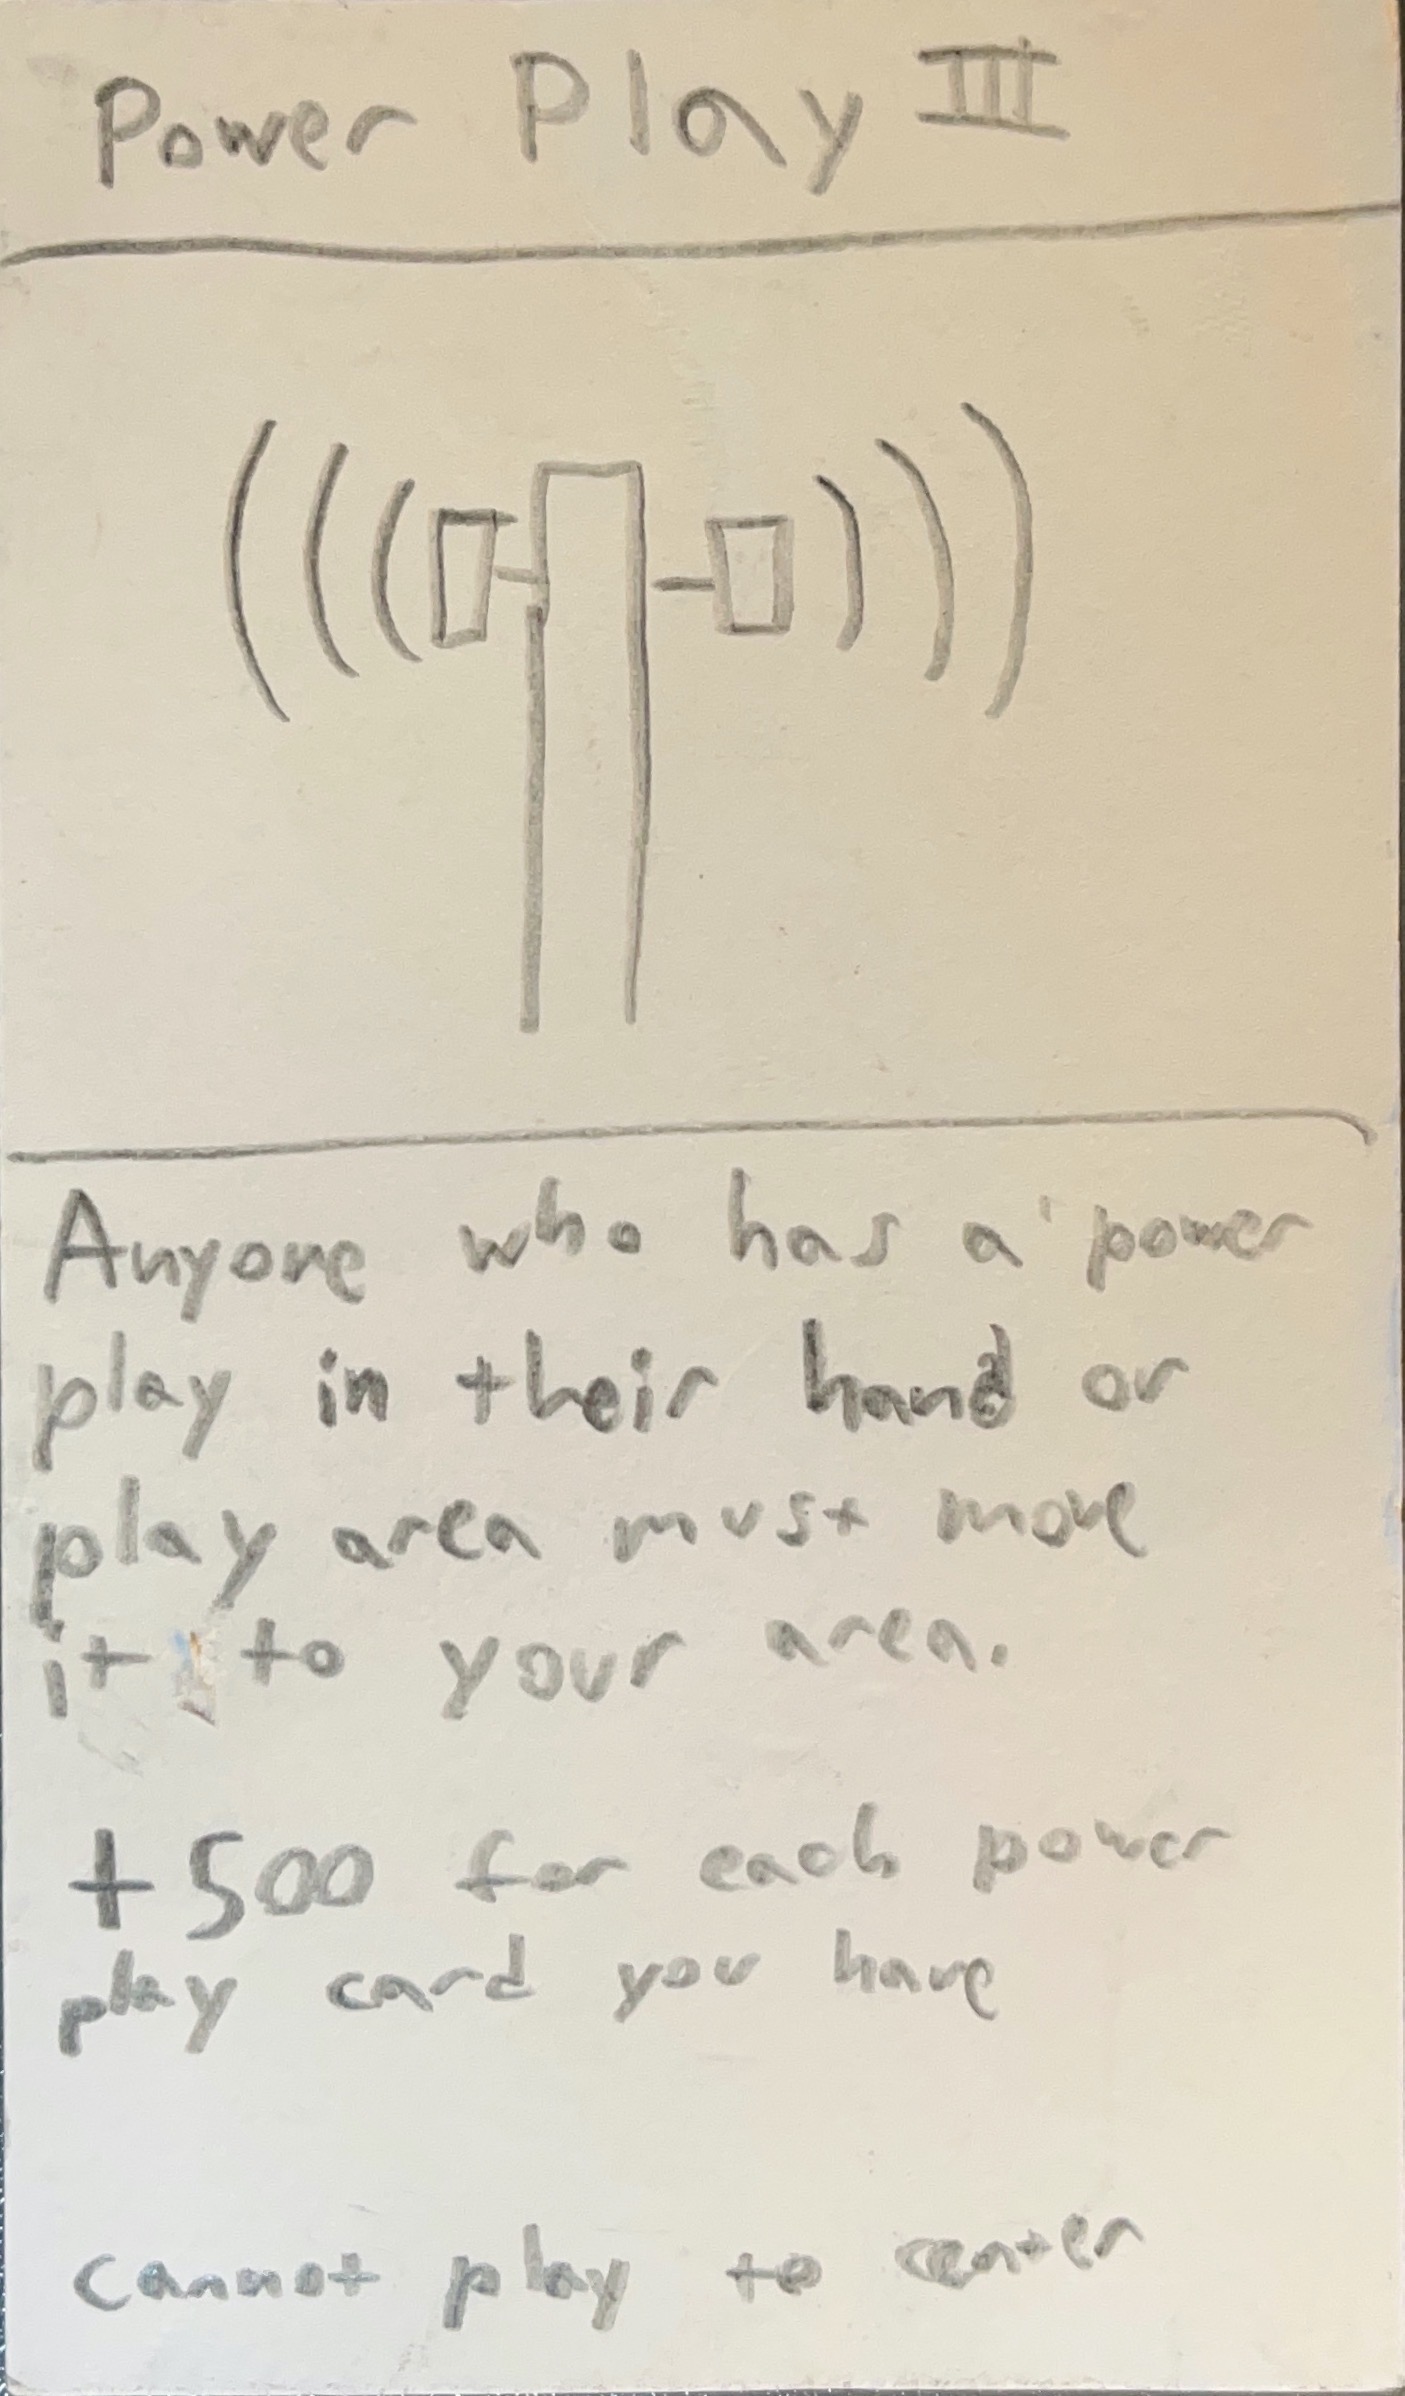 Power Play III
Anyone who has a power
play in their hand or
play area must move
it to your area.
+500 for each power
play card you have
cannot play to center